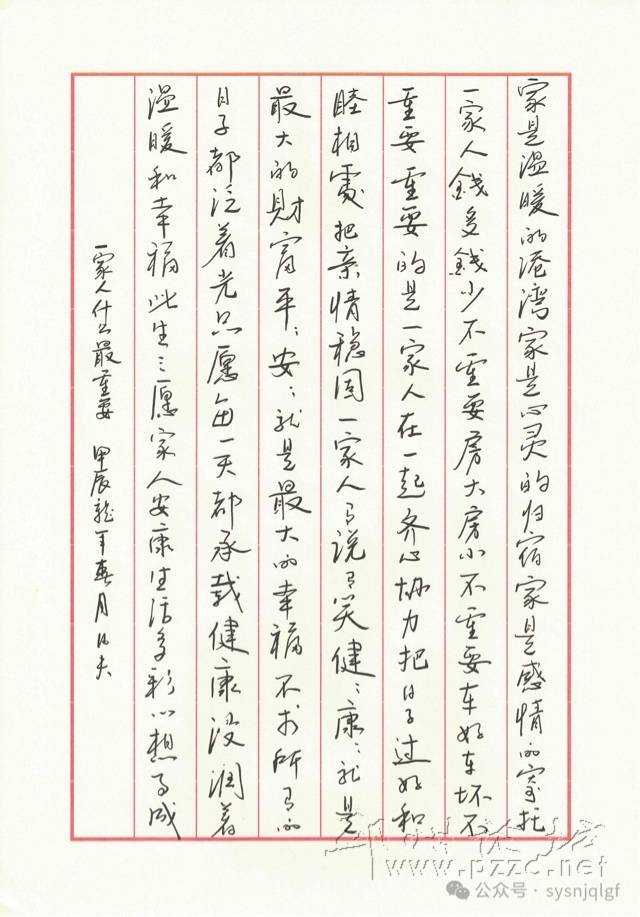 家是温暖的港灣家是心灵的归宿家是感情的寄托
一家人錢多錢少不重要房大房小不重要车好车坏不
重要重要的是一家人在一起齐心协力把日子过好和
睦相處把亲情稳固一家人有说有笑健〻康〻就是
最大的財富平〻安〻就是最大的幸福不求所有的
日子都泛着光只愿每一天都承载健康浸润着
温暖和幸福此生之愿家人安康生活多彩心想事成
一家人什么最重要 甲辰龍年春月
www.pzzc.net
公众号·sysnjqlgf